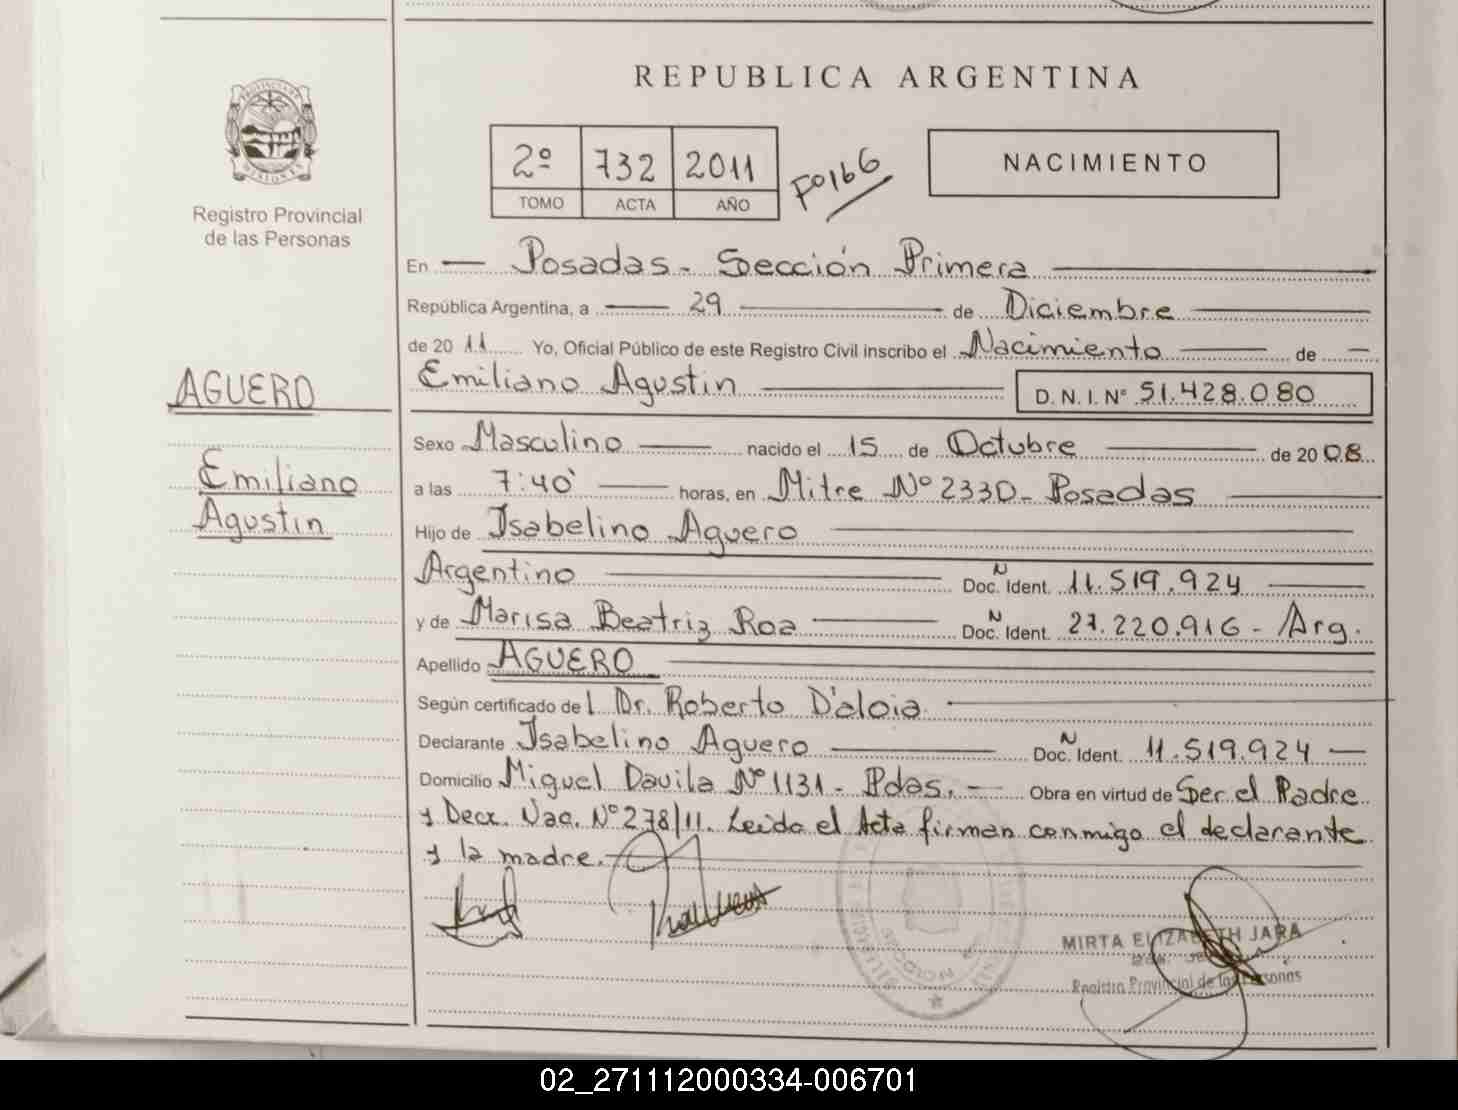 REPUBLICA ARGENTINA
2º 732 2011
TOMO ACTA AÑO
Fº166
NACIMIENTO
PROVINCIA DE MISIONES
Registro Provincial
de las Personas
AGUERO
Emiliano
Agustin
En Posadas - Sección Primera
República Argentina, a 29 de Diciembre
de 20 11 Yo, Oficial Público de este Registro Civil inscribo el Nacimiento de
Emiliano Agustin D. N. I. Nº 51.428.080
Sexo Masculino nacido el 15 de Octubre de 20 08
a las 7:40' horas, en Mitre Nº 2330 - Posadas
Hijo de Isabelino Aguero
Argentino Doc. N Ident. 11.519.924
y de Marisa Beatriz Roa Doc. N Ident. 27.220.916 - Arg.
Apellido AGUERO
Según certificado de l Dr. Roberto D'aloia
Declarante Isabelino Aguero Doc. N Ident. 11.519.924
Domicilio Miguel Davila Nº 1131 - Pdas. Obra en virtud de Ser el Padre
y Decr. Nac. Nº 278/11. Leida el Acta firman conmigo el declarante
y la madre.
MIRTA ELIZABETH JARA
Registro Provincial de las Personas
02_271112000334-006701